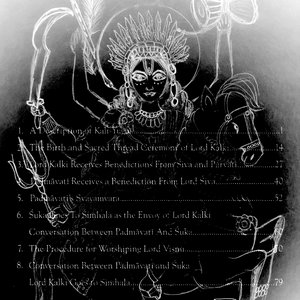 1. A Description of Kali Yuga 1
2. The Birth and Sacred Thread Ceremony of Lord Kalki 14
3. Lord Kalki Receives Benedictions From Siva and Parvati
4. Padmāvatī Receives a Benediction From Lord Siva 40
5. Padmāvatī's Svayamvara 52
6. Suka to Simhala as the Envoy of Lord Kalki
Conversation Between Padmāvatī And Suka
7. The Procedure for Worshiping Lord Visnu
8. Conversation Between Padmāvatī and Suka
Lord Kalki Goes to Simhala 79